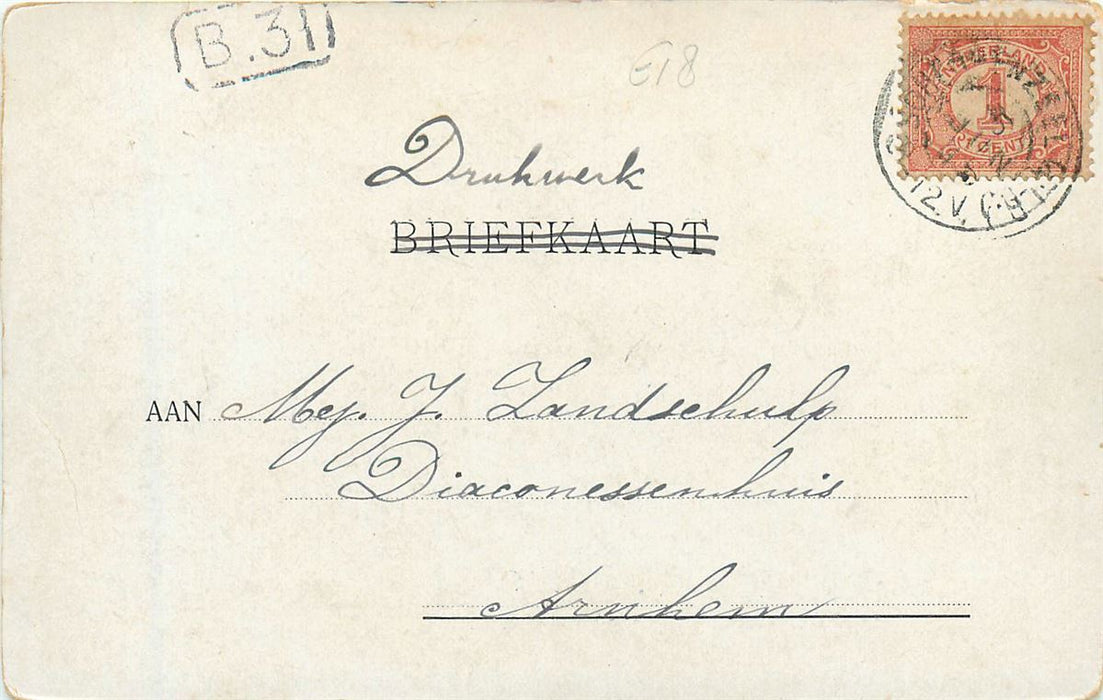 B.31
E18
NEDERLAND
1
CENT
12.V.
Drukwerk
BRIEFKAART
AAN Mej. J. Landschulp
Diaconessenhuis
Arnhem